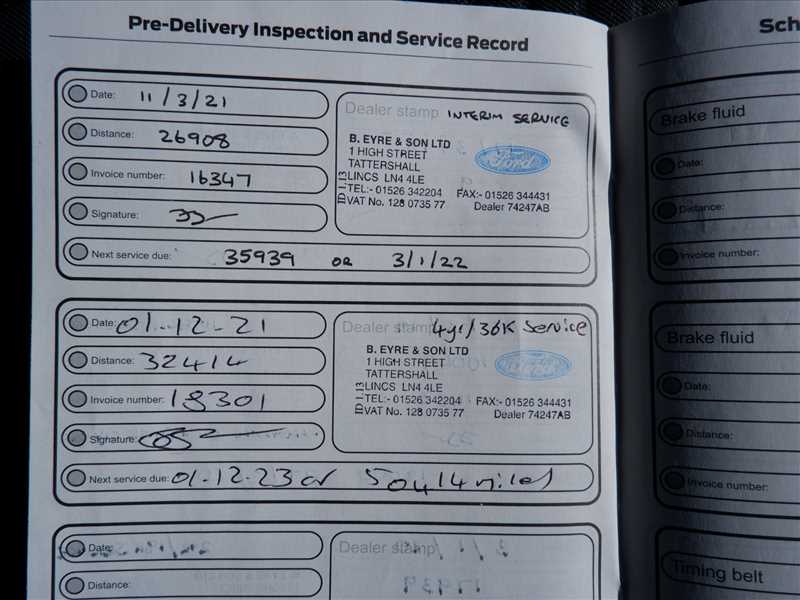 Pre-Delivery Inspection and Service Record
Date: 11/3/21
Distance: 26908
Invoice number: 16347
Signature:
Next service due: 35939 OR 3/1/22
Dealer stamp INTERIM SERVICE
B. EYRE & SON LTD
1 HIGH STREET
TATTERSHALL
LINCS LN4 4LE
TEL:- 01526 342204 FAX:- 01526 344431
VAT No. 128 0735 77 Dealer 74247AB
Ford
Date: 01-12-21
Distance: 32414
Invoice number: 18301
Signature:
Next service due: 01.12.23 or 50414 miles
Dealer stamp 4yr/36K Service
B. EYRE & SON LTD
1 HIGH STREET
TATTERSHALL
LINCS LN4 4LE
TEL:- 01526 342204 FAX:- 01526 344431
VAT No. 128 0735 77 Dealer 74247AB
Ford
Date:
Distance:
Dealer stamp
Sch
Brake fluid
Date:
Distance:
Invoice number:
Brake fluid
Date:
Distance:
Invoice number:
Timing belt